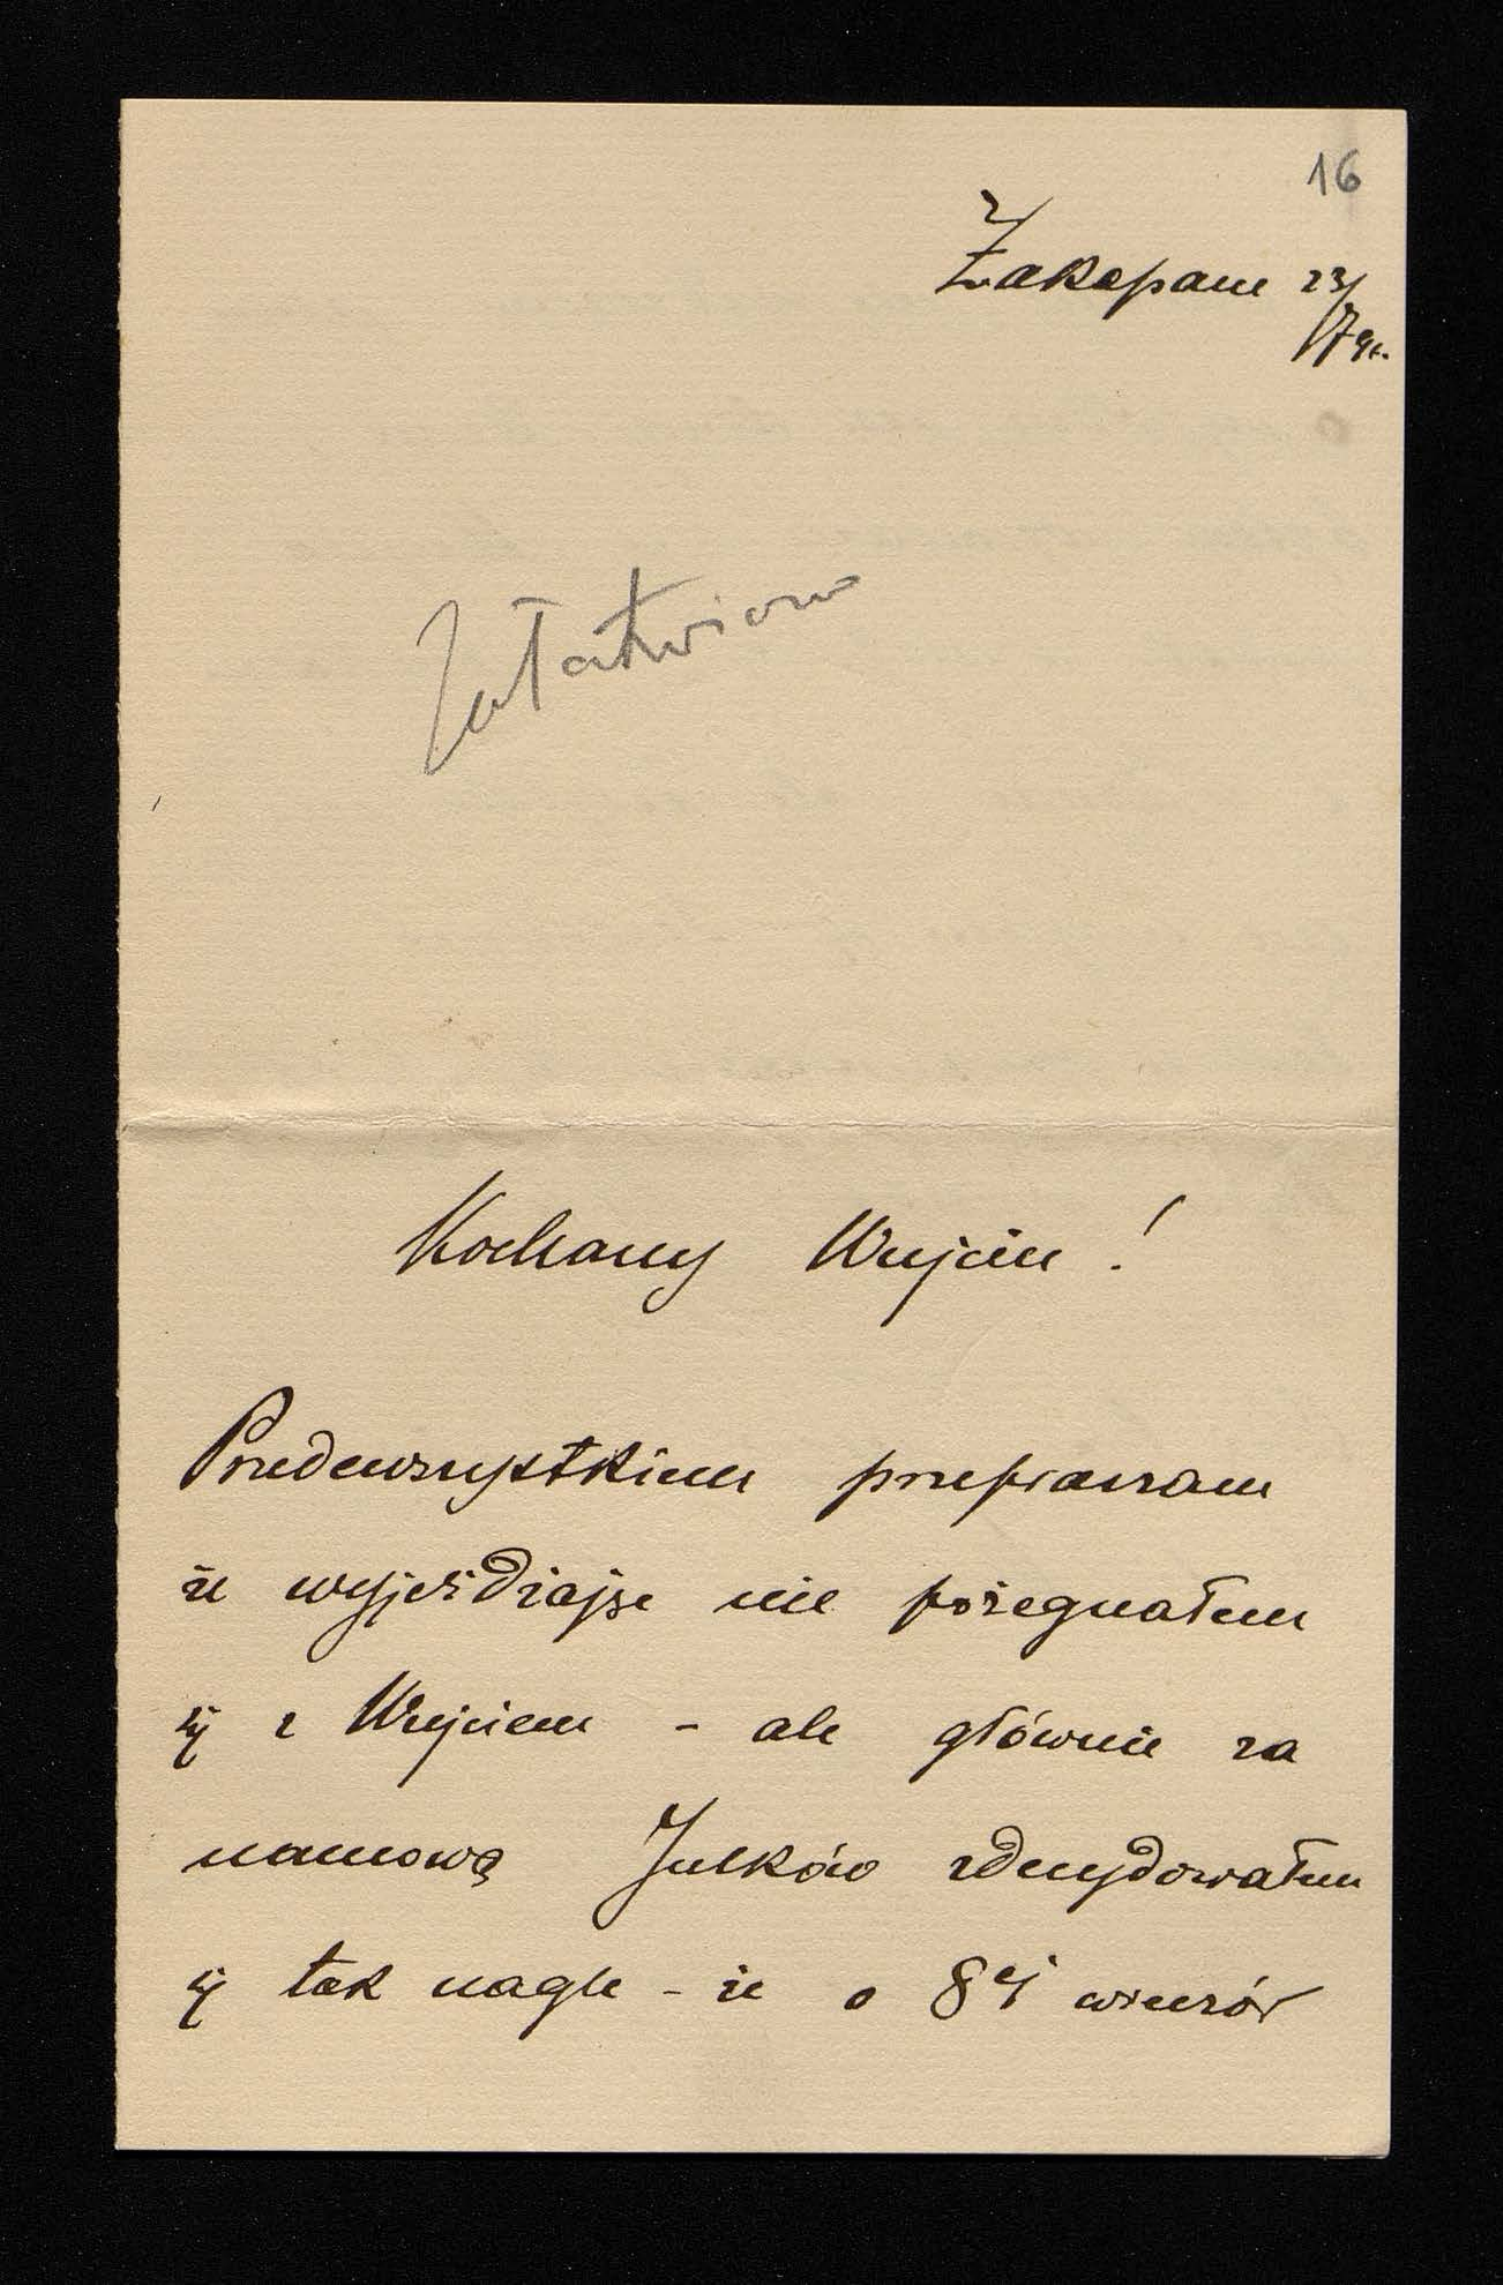 16
Zakopane 23/
7 9
Załatwiono
Kochany Wujciu!
Przedewszystkiem przepraszam
że wyjeżdżając nie pożegnałem
się z Wujciem - ale głównie za
namową Julków zdecydowałem
się tak nagle - że o 8ej wieczór